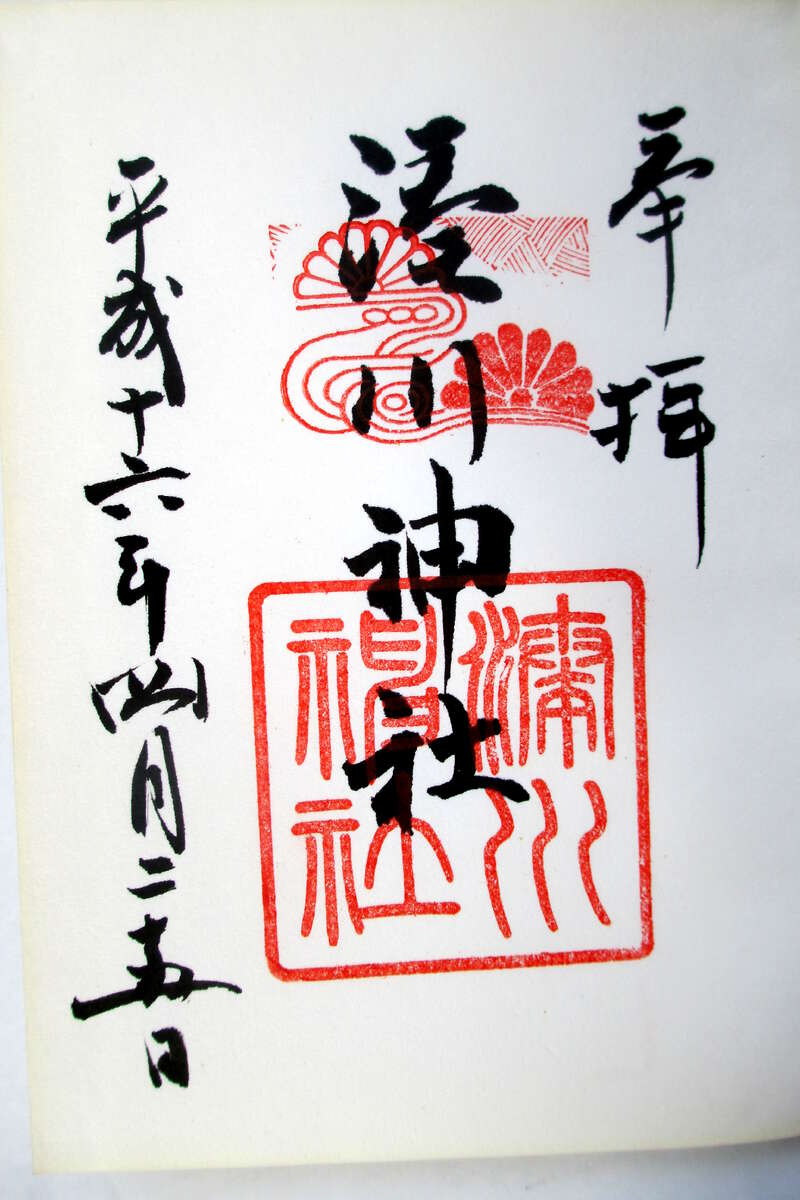 奉拝
湊川神社
湊川神社
平成十六年四月二十五日